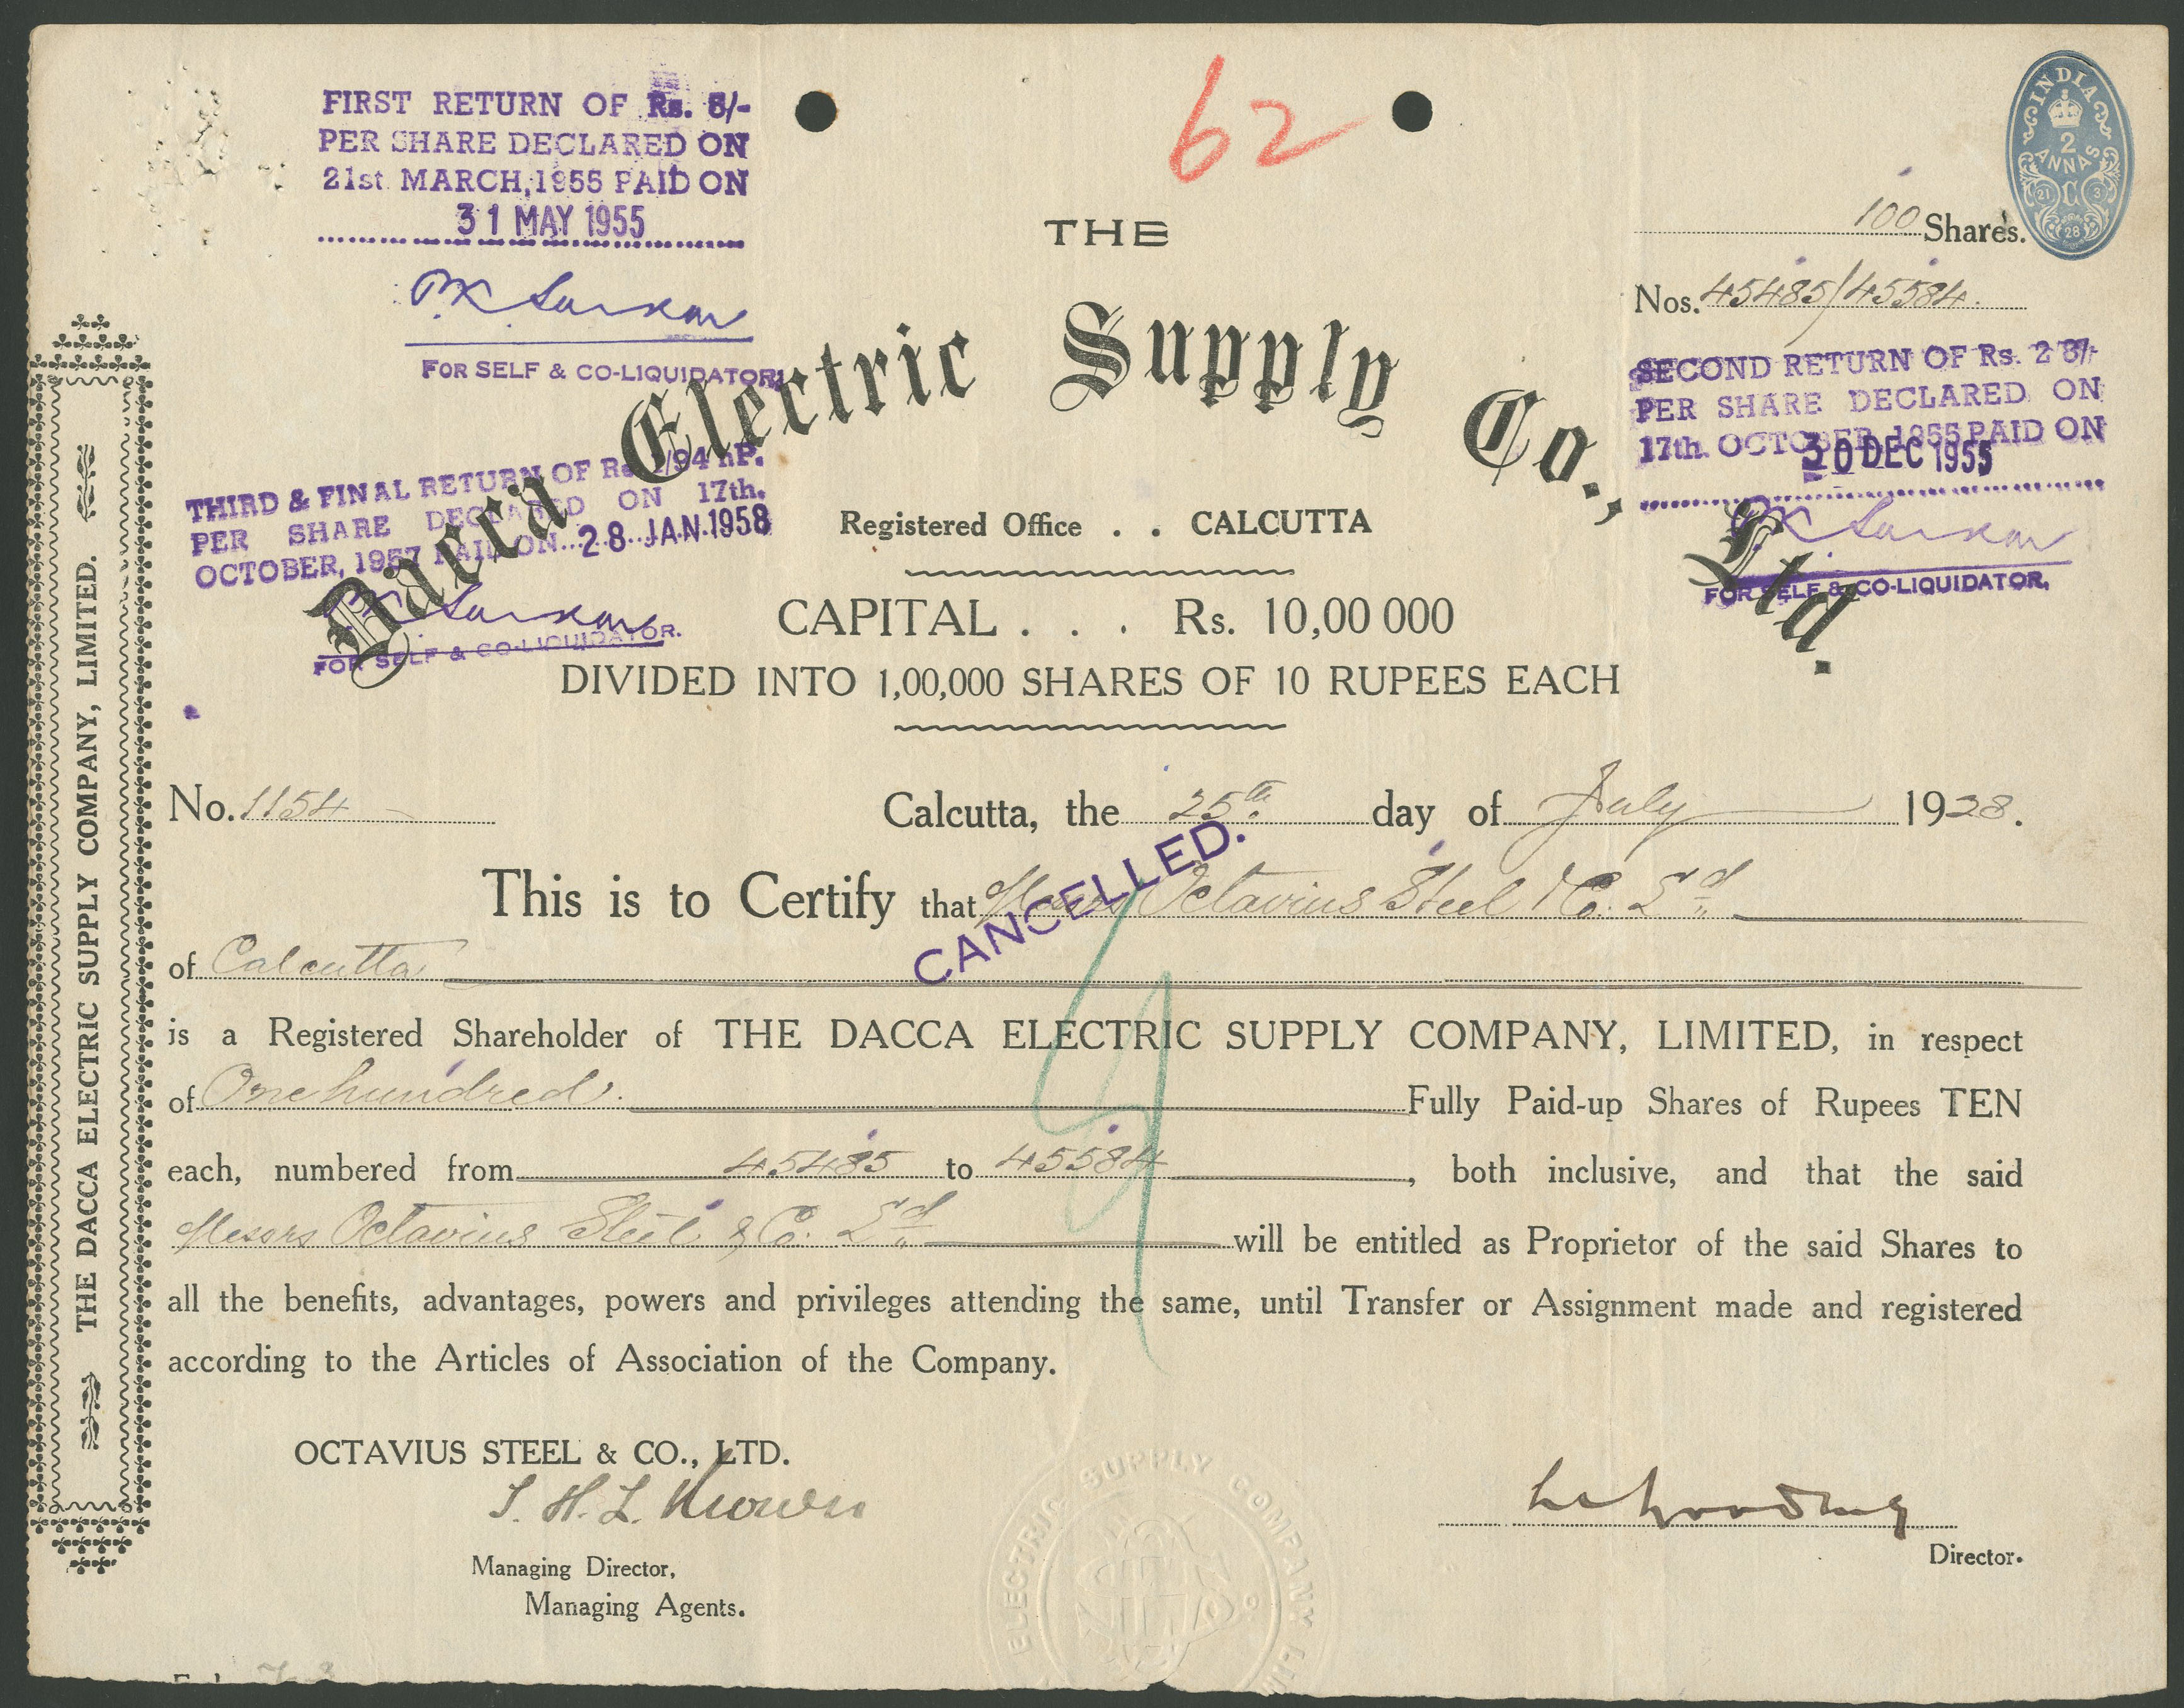 FIRST RETURN OF Rs. 5/-
PER SHARE DECLARED ON
21st MARCH, 1955 PAID ON
31 MAY 1955
PK Sarkar
FOR SELF & CO-LIQUIDATOR.
62
INDIA
2
ANNAS
C
21 3
28
100 Shares.
Nos. 45485/45584.
SECOND RETURN OF Rs. 2
PER SHARE DECLARED ON
17th. OCTOBER, 1955 PAID ON
30 DEC 1955
PK Sarkar
FOR SELF & CO-LIQUIDATOR.
THE
Dacca Electric Supply Co., Ltd.
THIRD & FINAL RETURN OF /94 nP.
PER SHARE DECLARED ON 17th.
OCTOBER, 1957 PAID ON 28 JAN. 1958
PK Sarkar
FOR SELF & CO-LIQUIDATOR.
Registered Office . . CALCUTTA
CAPITAL . . . Rs. 10,00 000
DIVIDED INTO 1,00,000 SHARES OF 10 RUPEES EACH
No. 1154
Calcutta, the 25th day of July 1928.
CANCELLED.
This is to Certify that Messrs Octavius Steel & Co. Ld
of Calcutta
is a Registered Shareholder of THE DACCA ELECTRIC SUPPLY COMPANY, LIMITED, in respect
of One hundred. Fully Paid-up Shares of Rupees TEN
each, numbered from 45485 to 45584, both inclusive, and that the said
Messrs Octavius Steel & Co. Ld will be entitled as Proprietor of the said Shares to
all the benefits, advantages, powers and privileges attending the same, until Transfer or Assignment made and registered
according to the Articles of Association of the Company.
OCTAVIUS STEEL & CO., LTD.
Managing Director,
Managing Agents.
Director.
ELECTRIC SUPPLY COMPANY
THE DACCA ELECTRIC SUPPLY COMPANY, LIMITED.